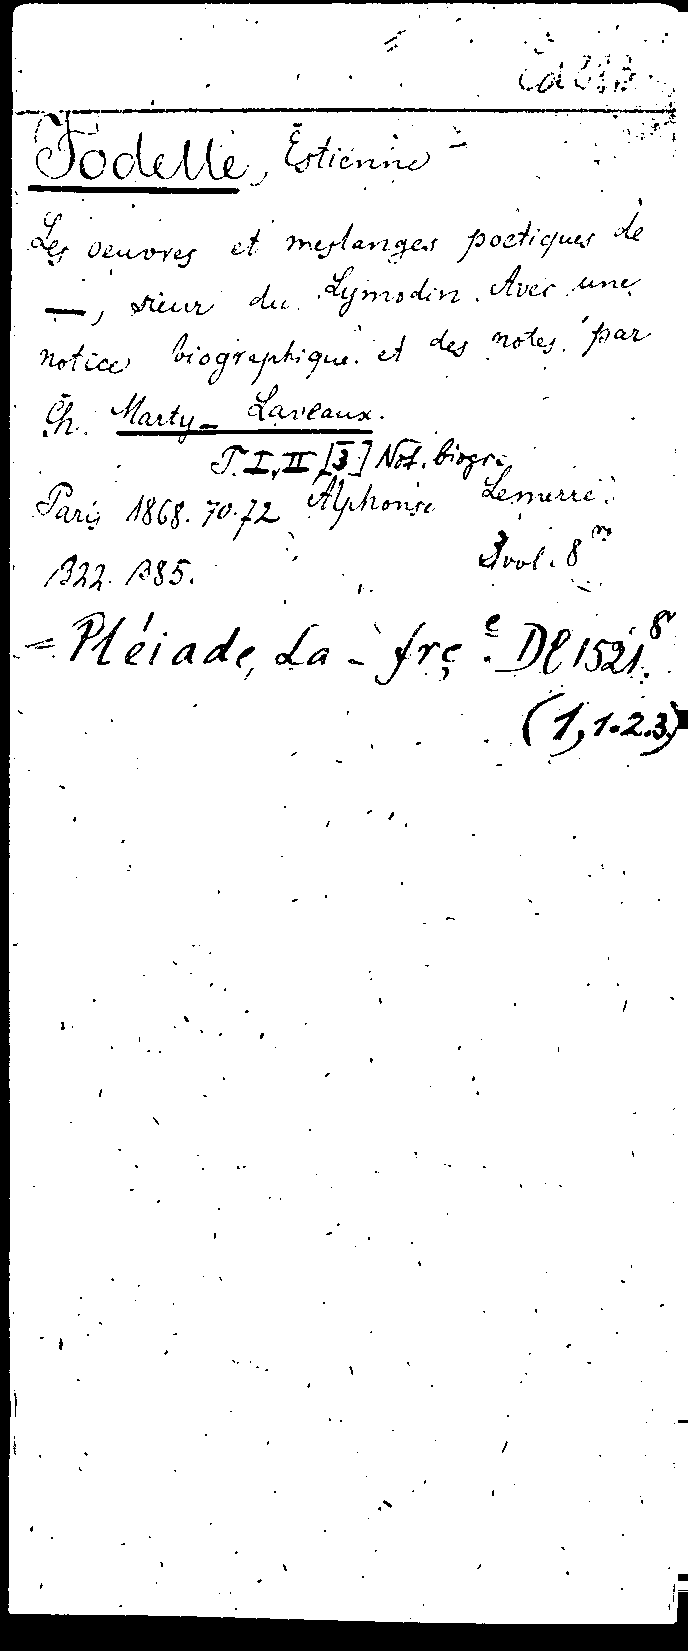 Jodelle, Estienne
Les oeuvres et meslanges poetiques de
—, sieur du Lymodin. Avec une
notice biographique et des notes par
Ch. Marty-Laveaux.
T. I, II [3] Not. biogr.
Paris 1868.70.72 Alphonse Lemerre.
3 vol. 8°
1322. 1385.
= Pléiade, La - frçe. Dl 1521.8
(1,1.2.3)